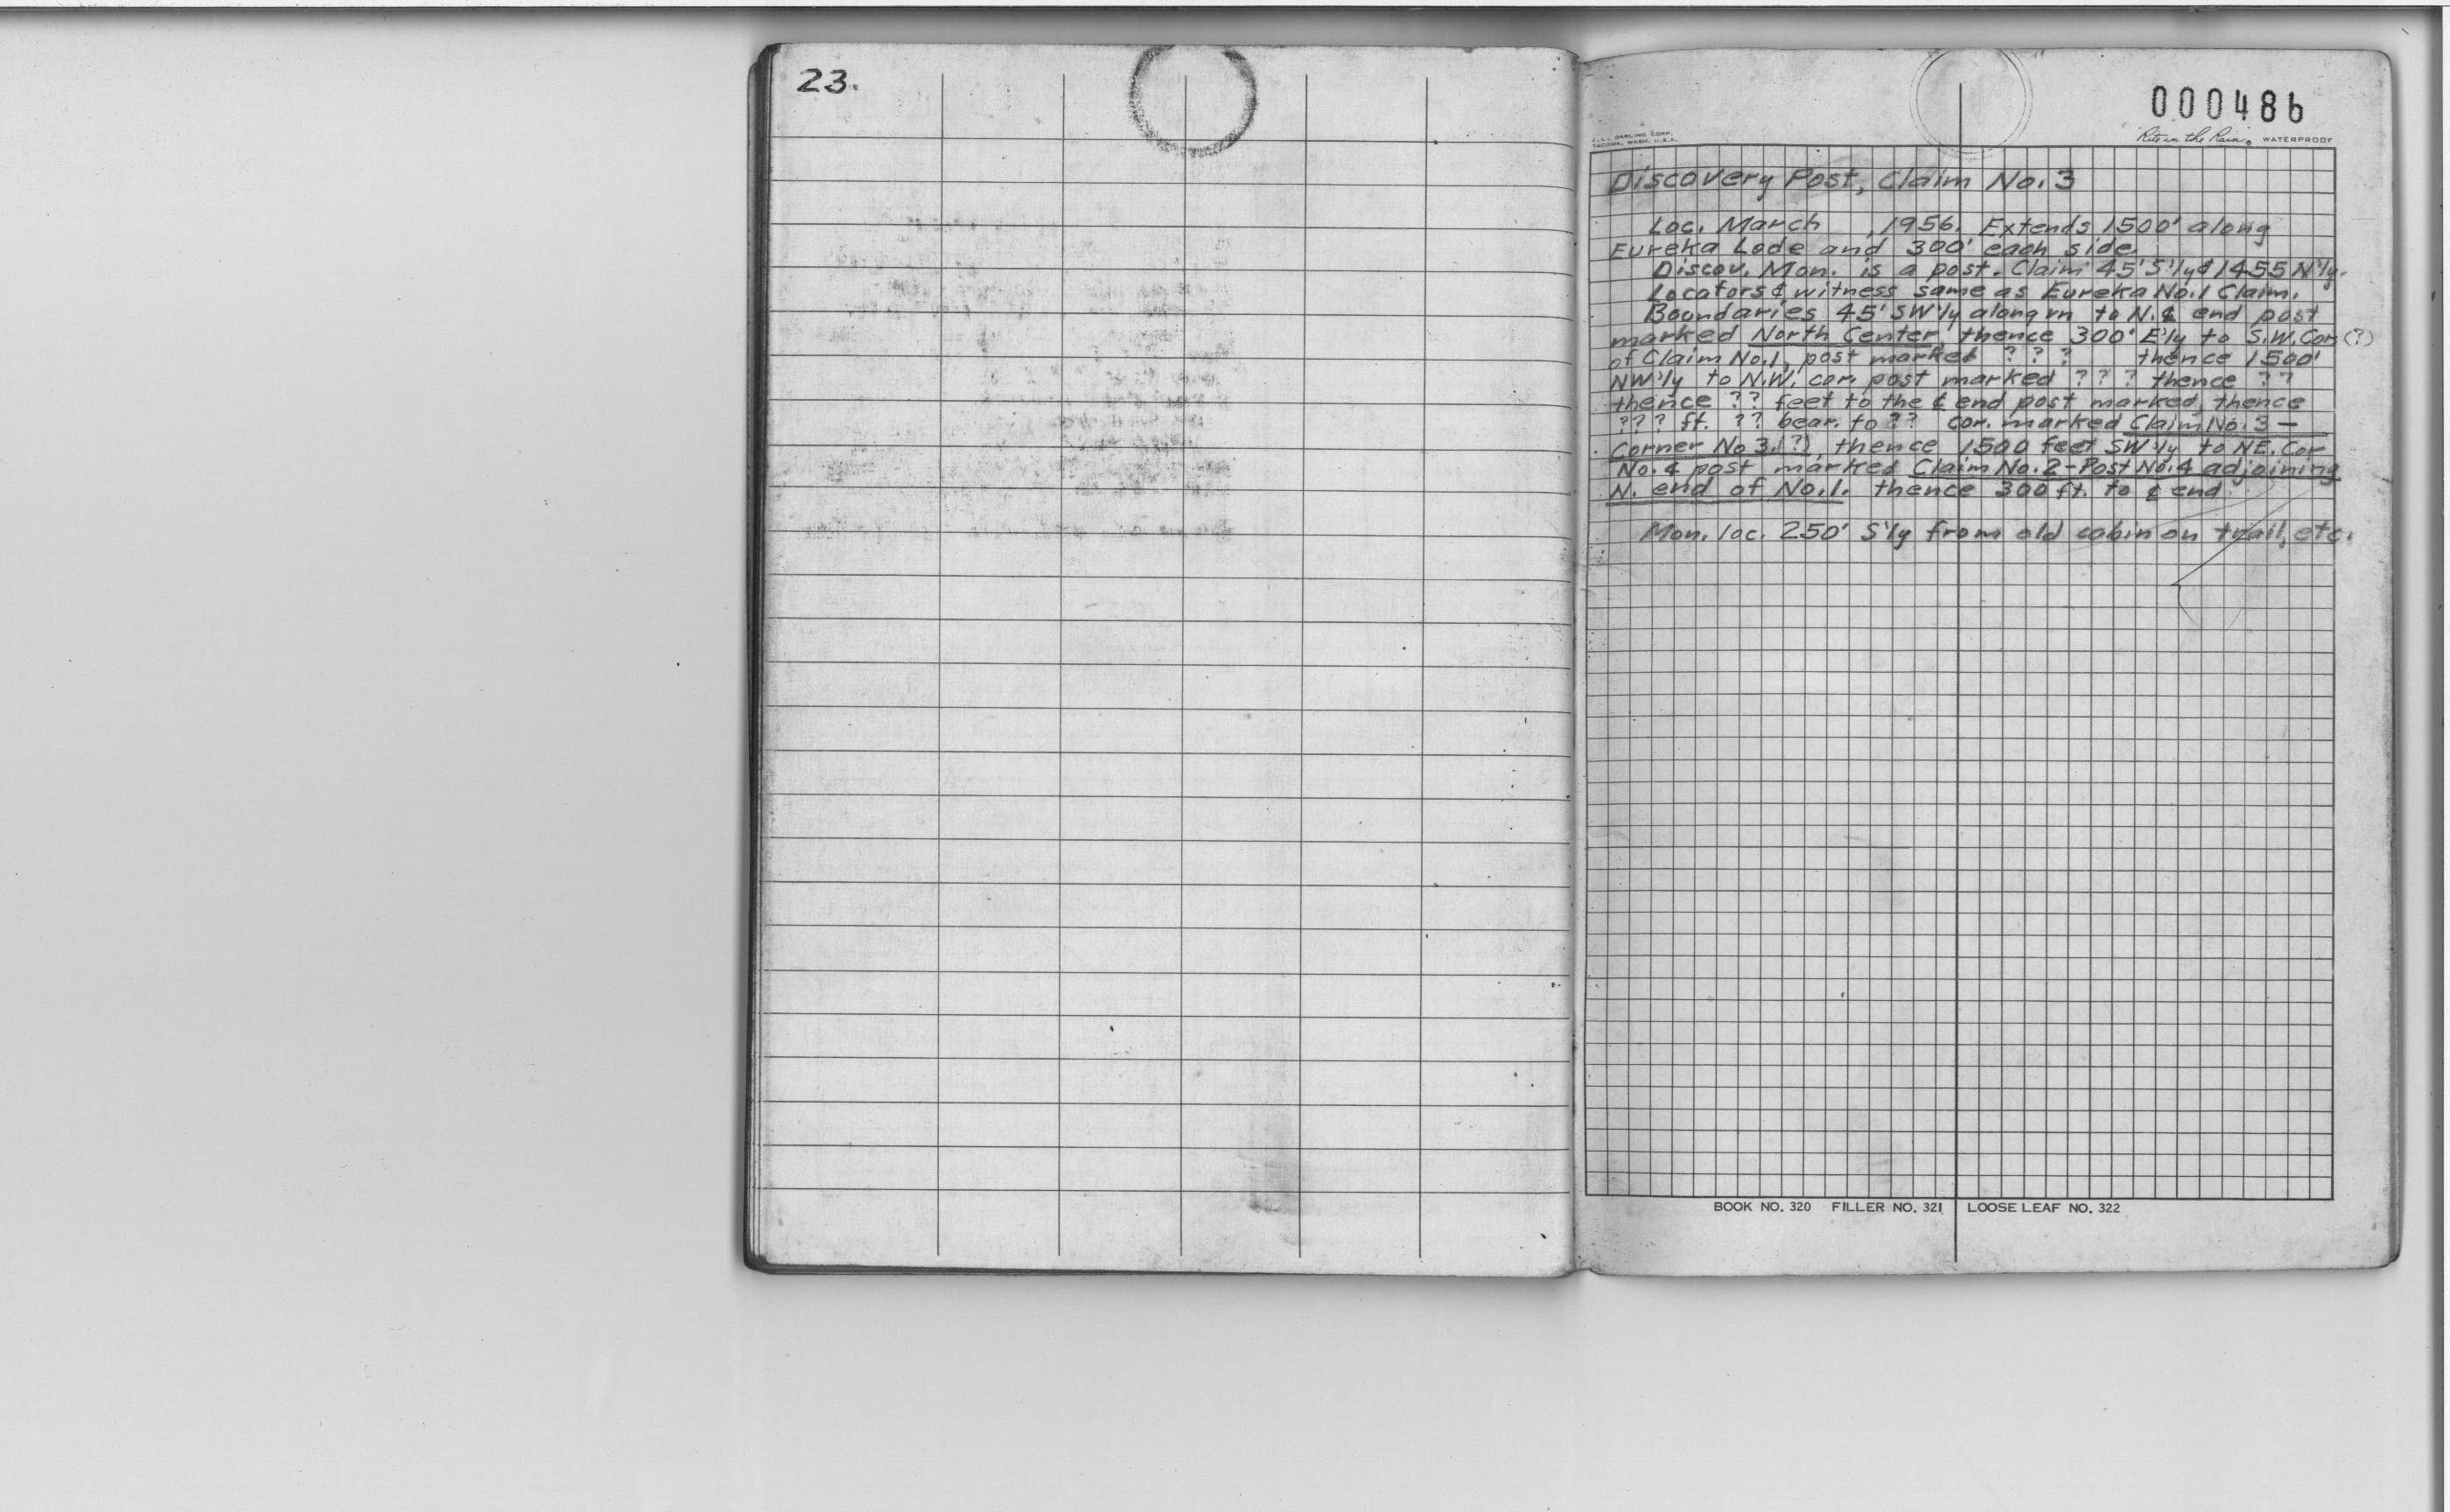 23.
000486
J. L. DARLING CORP.
TACOMA, WASH. U.S.A.
Rite in the Rain. WATERPROOF
Discovery Post, Claim No. 3
Loc. March , 1956. Extends 1500' along
Eureka Lode and 300' each side
Discov. Mon. is a post. Claim 45' S'ly & 1455 N'ly.
Locators & witness same as Eureka No. 1 Claim.
Boundaries 45' SW'ly along vn to N. ℄ end post
marked North Center, thence 300' E'ly to S.W. Cor. (?)
of Claim No. 1, post marked ? ? ? thence 1500'
NW'ly to N.W. cor. post marked ? ? ? thence ? ?
thence ? ? feet to the ℄ end post marked, thence
? ? ? ft. ? ? bear. to ? ? cor. marked Claim No. 3 —
Corner No 3. (?), thence 1500 feet SW'ly to NE. Cor
No. 4 post marked Claim No. 2 - Post No. 4 adjoining
N. end of No. 1. thence 300 ft. to ℄ end.
Mon. loc. 250' S'ly from old cabin on trail, etc.
BOOK NO. 320 FILLER NO. 321 LOOSE LEAF NO. 322